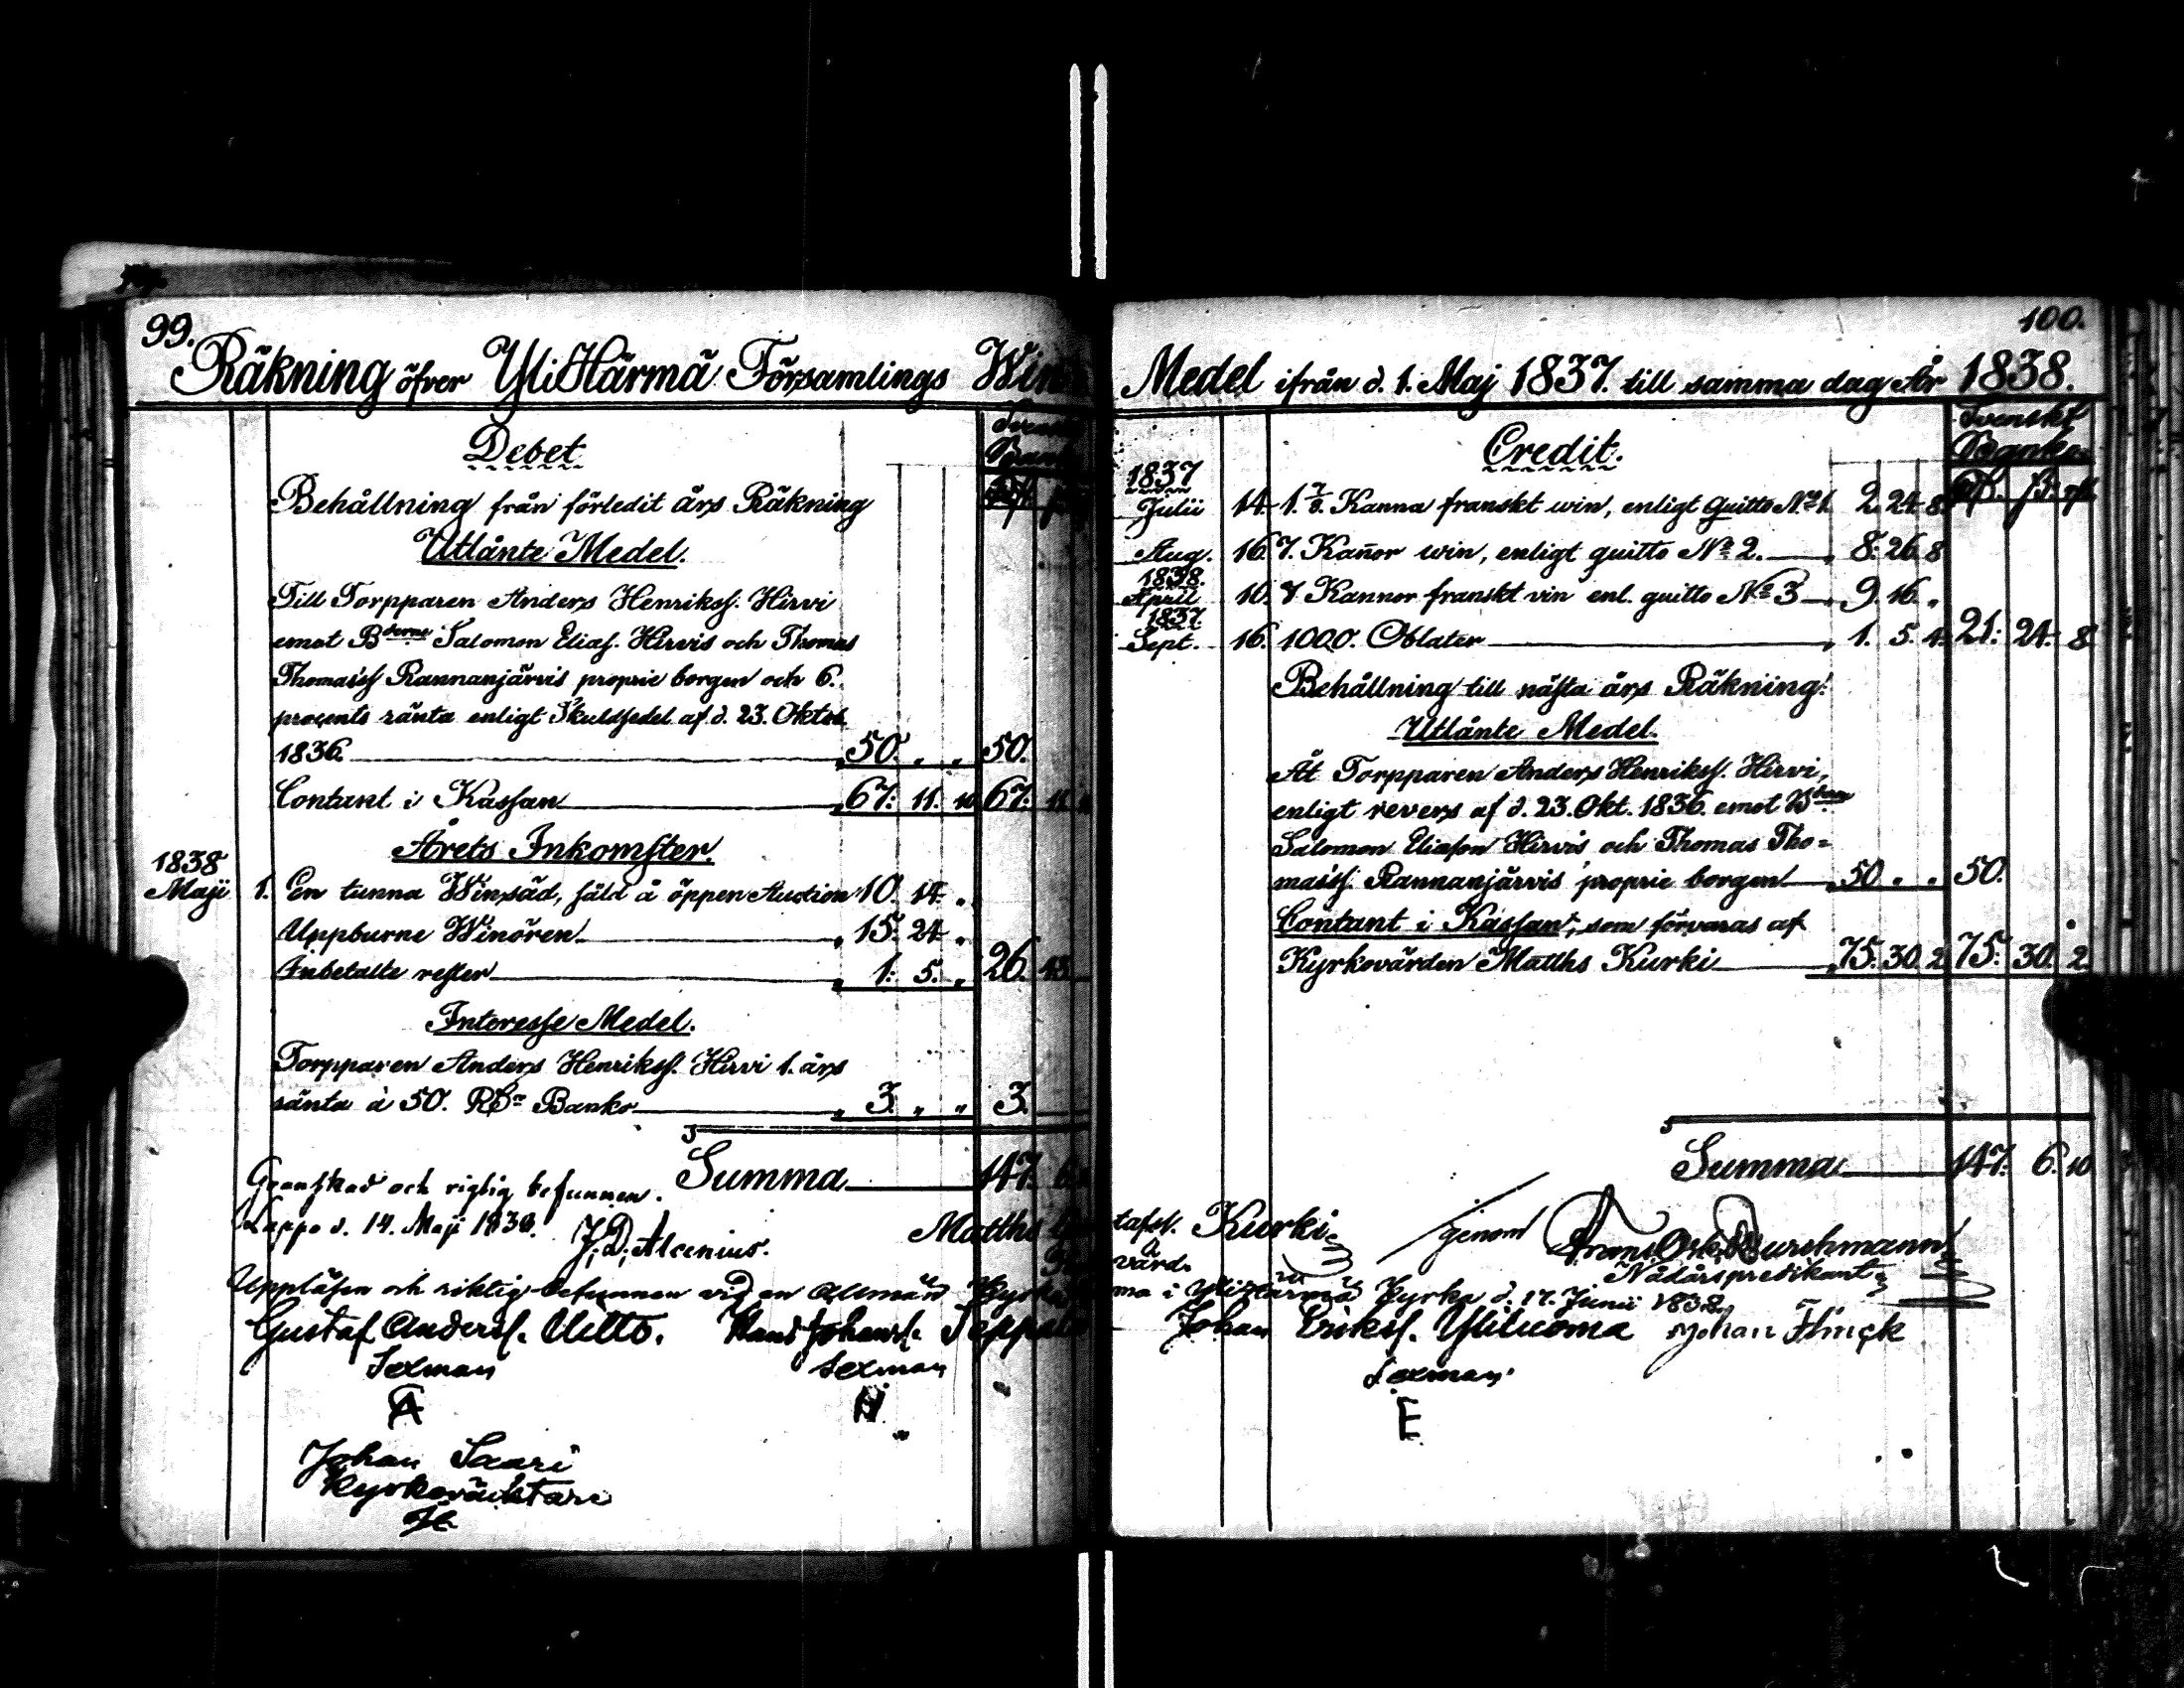 99.
Räkning öfver YliHärmä Församlings Win
Debet
Behållning från förledit års Räkning
Utlånte Medel.
Till Torpparen Anders Henrikss. Hirvi
emot Bderne Salomon Elias. Hirvis och Thomas
Thomaiss Rannanjärvis proprie borgen och 6.
procents ränta enligt Skuldsedel af d. 23. Oktob.
1836. 50. „ „ 50.
Contant i Kassan 67: 11. 10 67: 11
Årets Inkomster.
1838
Maji 1. En tunna Winsäd, såld å öppen Auction 10. 14. „
Uppburne Winören „ 15. 24 „
Inbetalte rester „ 1: 5. „ 26. 43
Interesse Medel.
Torpparen Anders Henrikss. Hirvi 1. års
ränta à 50. Rdr Banko „ 3. „ „ 3.
Summa 147. 6.
Granskad och rigtig befunnen.
Lappo d. 14. Maji 1838. J. D. Alcenius.
Matths
Uppläsen och riktig befunnen vid en Allmän Kyrko
Gustaf Anderss. Uitto. Hans Johanss. Seppälä
Sexman Sexman
A H
Johan Saari
Kyrkoväktare
100.
Medel ifrån d. 1. Maj 1837. till samma dag År 1838.
Credit.
Svenskt
Banko
1837
Julii 14. 1. 7/8. Kanna franskt win, enligt quitto No 1. 2. 24. 8.
Aug. 16. 7. Kañor win, enligt quitto No 2. „ 8. 26. 8
1838.
April 10. 7. Kannor franskt vin enl. quitto No 3 „ 9. 16. „
1837.
Sept. 16. 1000. Oblater „ 1. 5. 4. 21: 24. 8
Behållning till nästa års Räkning:
Utlånte Medel.
Åt Torpparen Anders Henrikss. Hirvi,
enligt revers af d. 23. Okt. 1836. emot Bderne
Salomon Eliason Hirvis och Thomas Tho=
maiss. Rannanjärvis proprie borgen „ 50. „ „ 50.
Contant i Kassan, som förvaras af
Kyrkovärden Matths Kurki „ 75. 30. 2 75: 30. 2
Summa 147. 6. 10
tafss. Kurki
värd.
genom Frans Osk. Durchmann
Nådårspredikant
ma i YliHärmä Kyrka d. 17. Junii 1838.
Johan Erikss. Yliluoma Johan Flinck
Sexman
E